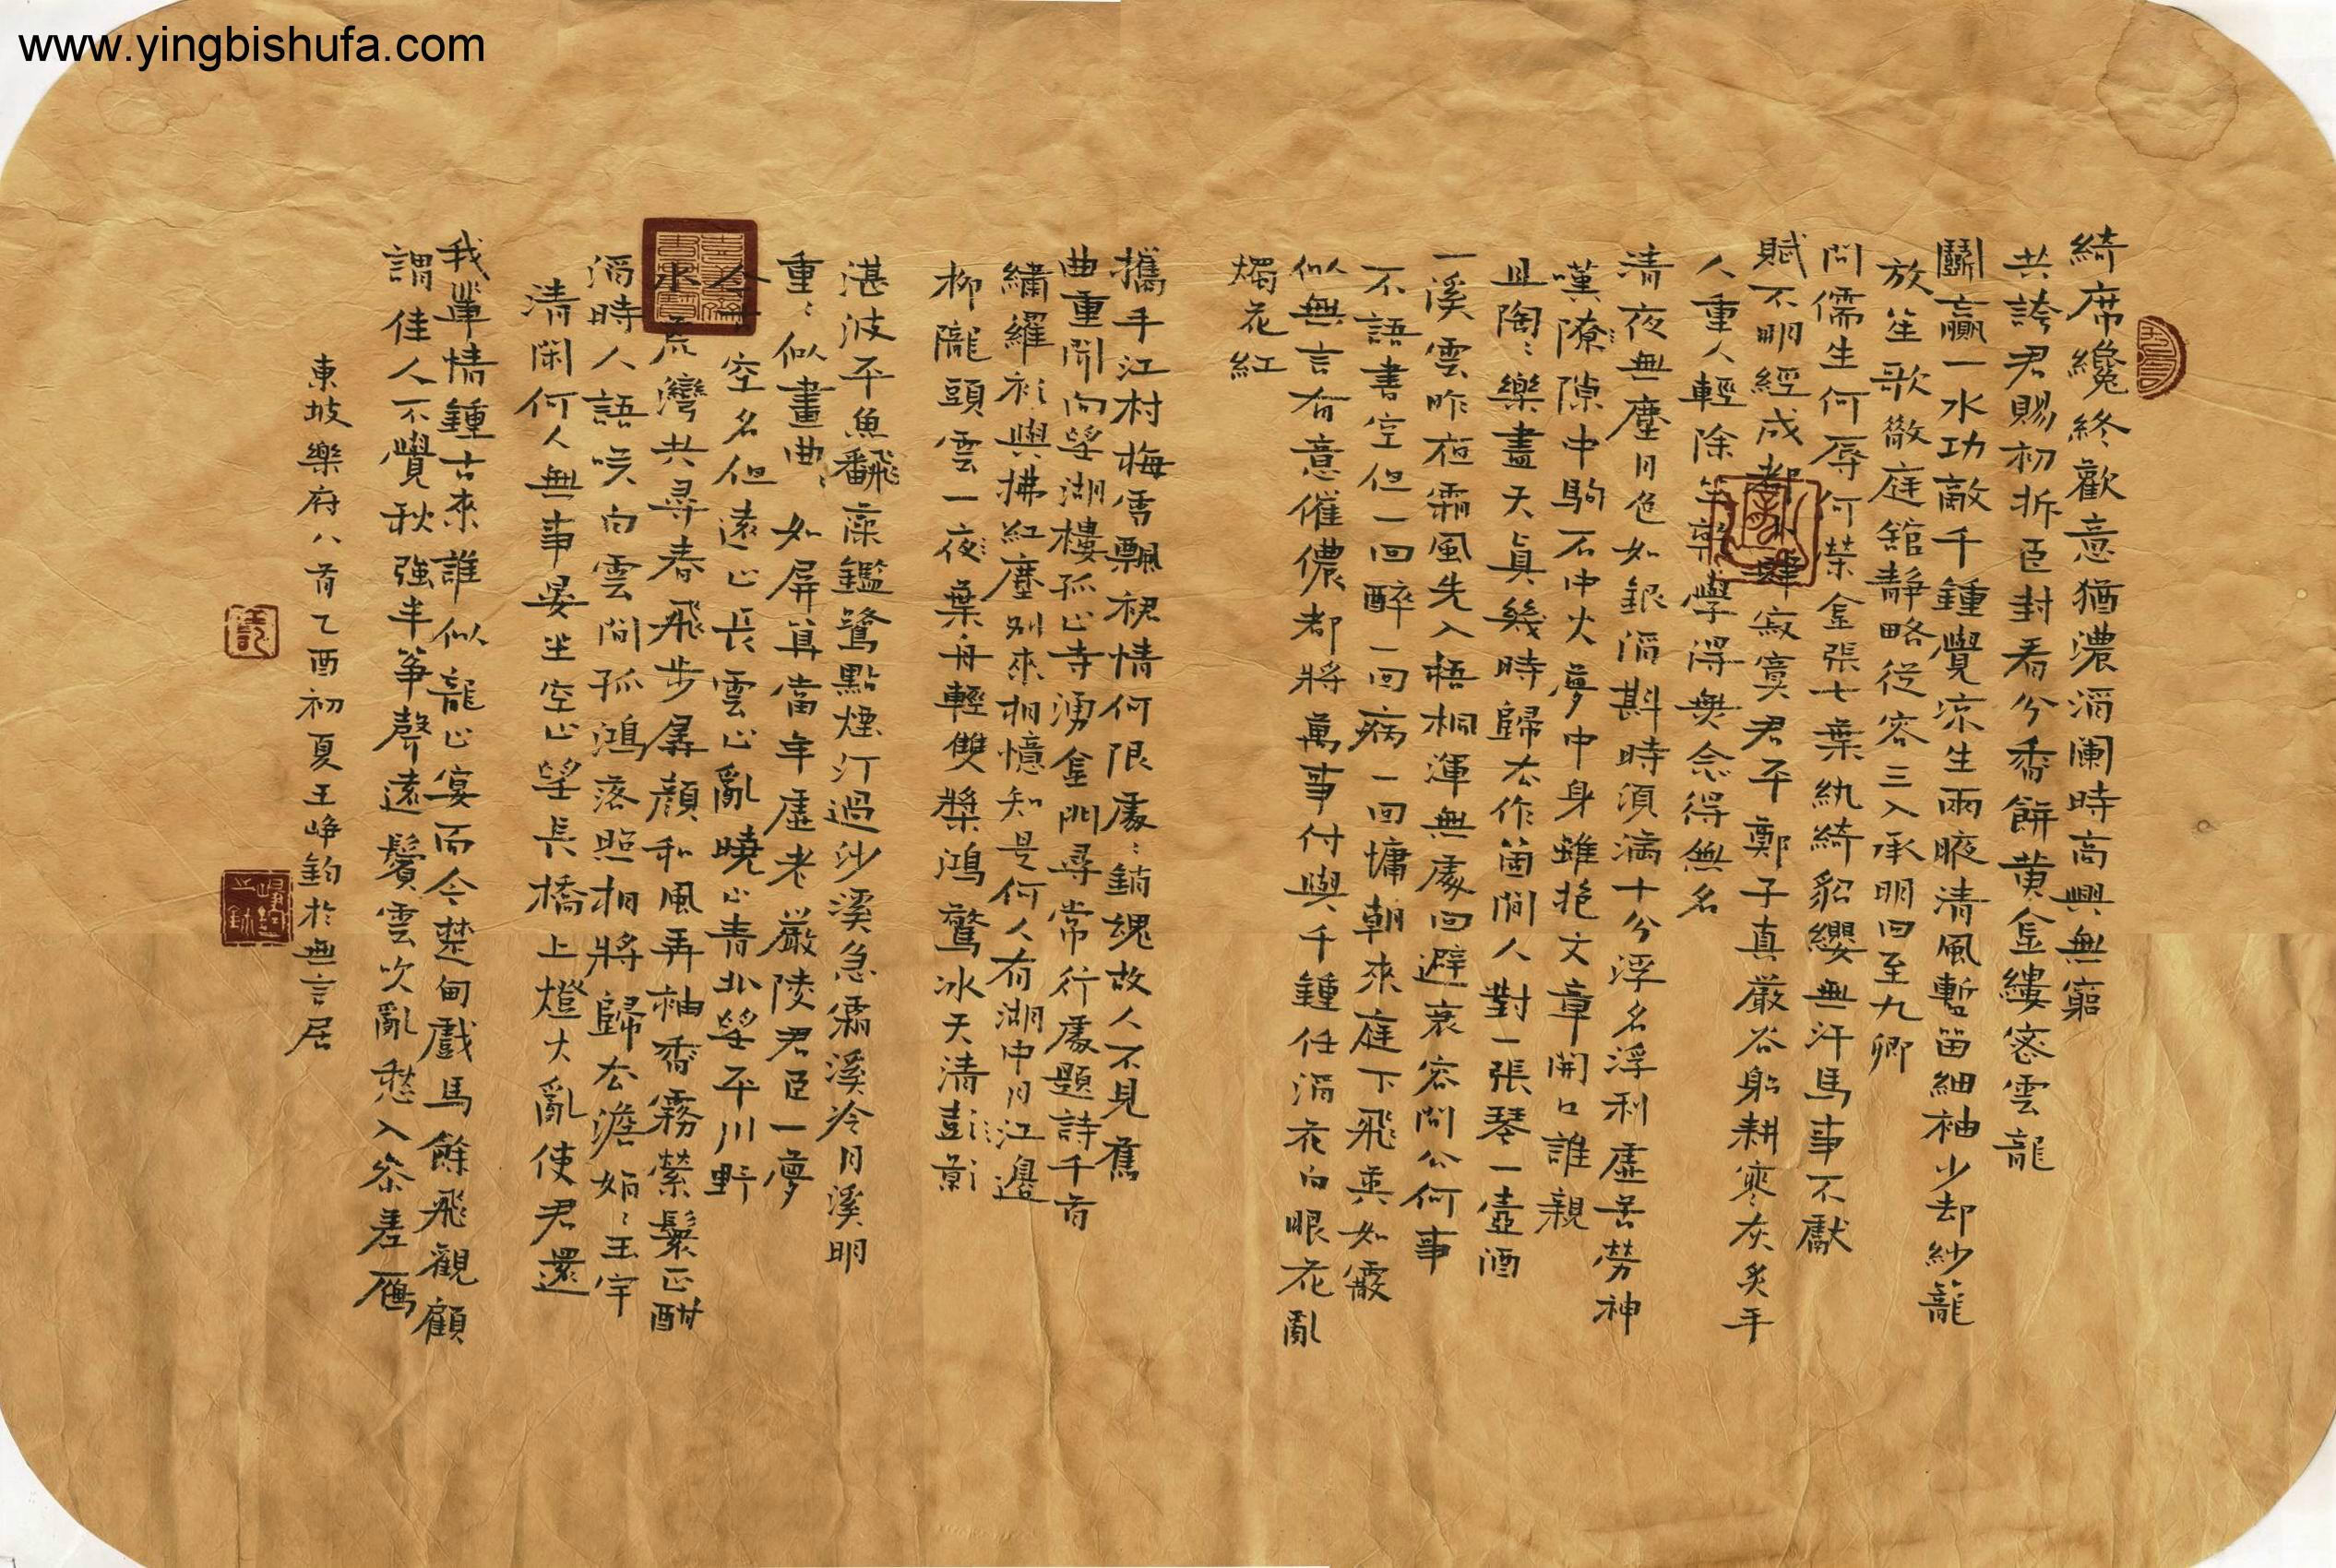 www.yingbishufa.com
綺席纔終歡意猶濃酒闌時高興無窮
共誇君賜初拆臣封看分香餅黃金縷密雲龍
鬭贏一水功敵千鍾覺凉生兩腋清風暫留紅袖少却紗籠
放笙歌散庭館靜略從容三入承明回至九卿
問儒生何辱何榮金張七葉紈綺貂纓無汗馬事不獻
賦不明經成都肆寂寞君平鄭子真嚴谷躬耕寒灰炙手
人重人輕除竺乾學得無念得無名
清夜無塵月色如銀酒斟時須滿十分浮名浮利虛苦勞神
嘆隙中駒石中火夢中身雖抱文章開口誰親
且陶陶樂盡天真幾時歸去作箇閒人對一張琴一壺酒
一溪雲昨夜霜風先入梧桐渾無處回避衰容問公何事
不語書空但一回醉一回病一回慵朝來庭下飛英如霰
似無言有意催儂都將萬事付與千鍾任酒花白眼花亂
燭花紅
攜手江村梅雪飄裙情何限處處銷魂故人不見舊
曲重聞向望湖樓孤山寺湧金門尋常行處題詩千首
繡羅衫與拂紅塵別來相憶知是何人有湖中月江邊
柳隴頭雲一葉舟輕雙槳鴻驚水天清影
湛波平魚翻藻鑑鷺點煙汀過沙溪急霜溪冷月溪明
重重似畫曲曲如屏算當年虛老嚴陵君臣一夢
今古空名但遠山長雲山亂曉山青北望平川野
水荒灣共尋春飛步孱顏和風弄袖香霧縈鬟正酣
酒時人語笑向雲間孤鴻落照相將歸去澹娟娟玉宇
清閑何人無事宴坐空山望長橋上燈火亂使君還
我輩情鍾古來誰似龍山宴而今楚甸戲馬餘飛觀顧
謂佳人不覺秋強半箏聲遠鬢雲吹亂愁入參差雁
東坡樂府八首乙酉初夏王崢鈞於無言居